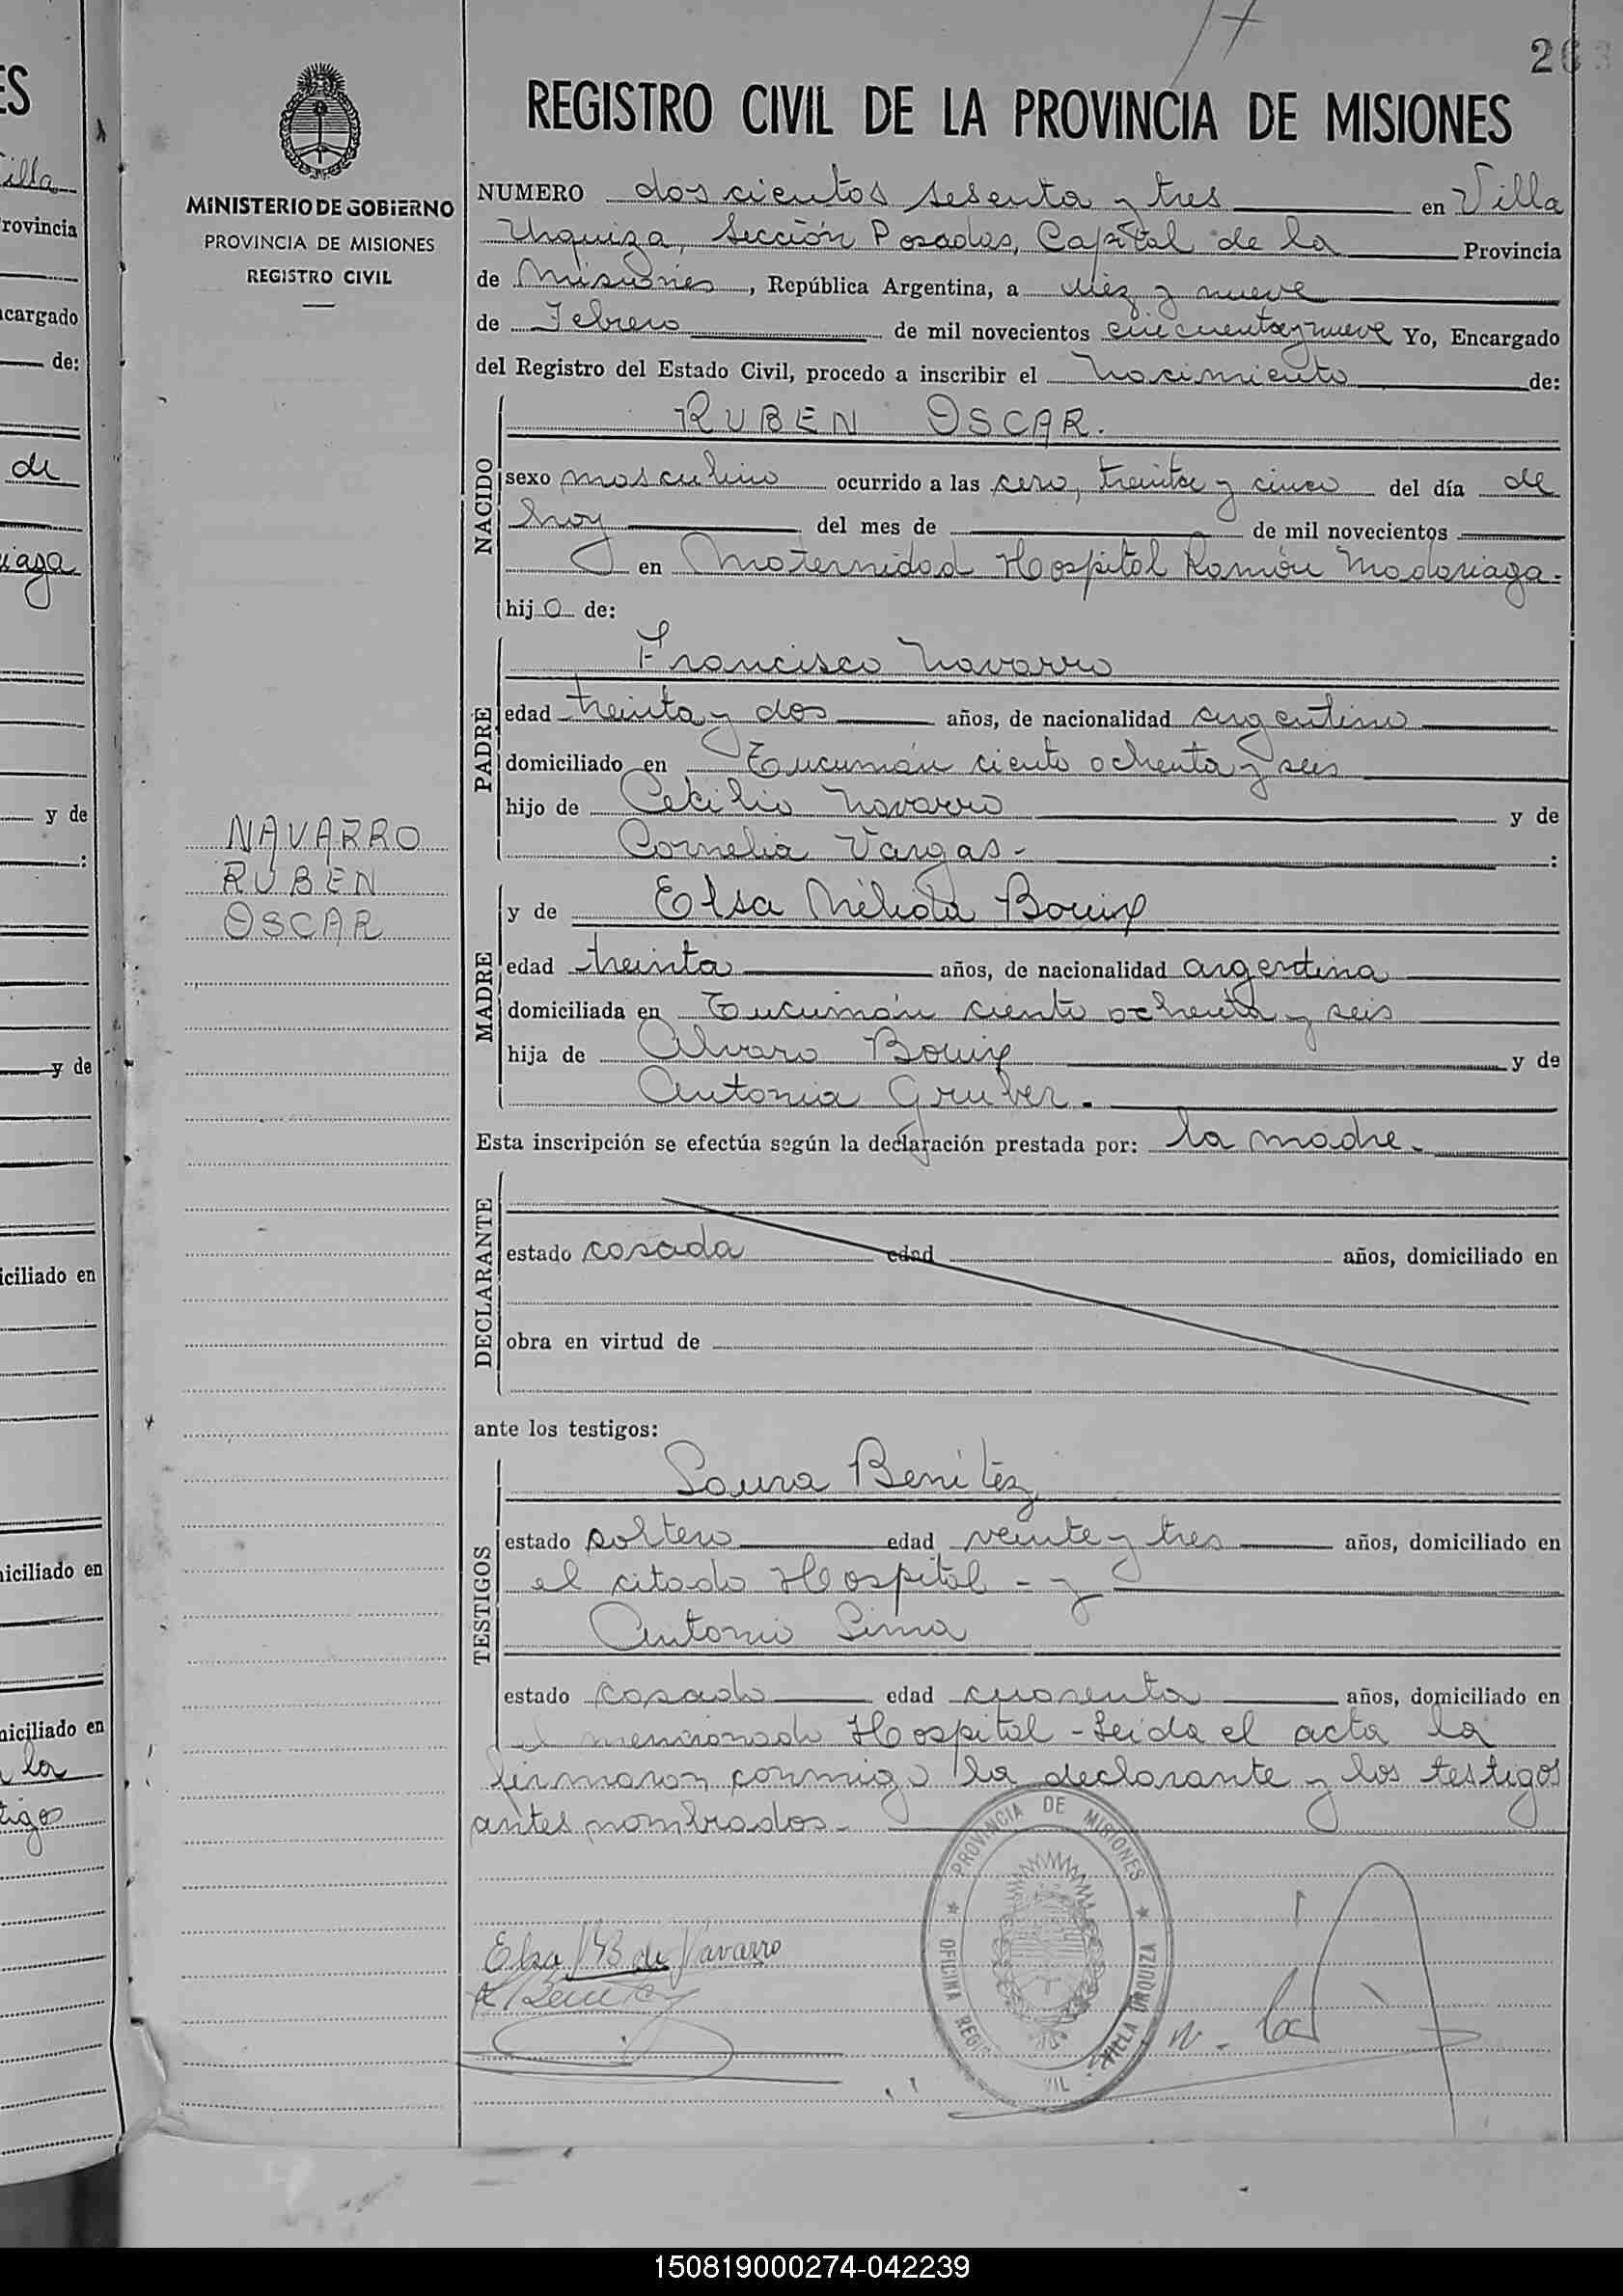 17
263
REGISTRO CIVIL DE LA PROVINCIA DE MISIONES
MINISTERIO DE GOBIERNO
PROVINCIA DE MISIONES
REGISTRO CIVIL
NUMERO doscientos sesenta y tres en Villa
Urquiza, Sección Posadas, Capital de la Provincia
de Misiones, República Argentina, a diez y nueve
de Febrero de mil novecientos cincuenta y nueve Yo, Encargado
del Registro del Estado Civil, procedo a inscribir el nacimiento de:
NACIDO
RUBEN OSCAR.
sexo masculino ocurrido a las cero, treinta y cinco del día de
hoy del mes de de mil novecientos
en Maternidad Hospital Ramón Madariaga.
hijo de:
PADRE
Francisco Navarro
edad treinta y dos años, de nacionalidad argentino
domiciliado en Tucumán ciento ochenta y seis
hijo de Cecilio Navarro y de
Cornelia Vargas- :
NAVARRO
RUBEN
OSCAR
MADRE
y de Elsa Bouix
edad treinta años, de nacionalidad argentina
domiciliada en Tucumán ciento ochenta y seis
hija de Alvaro Bouix y de
Antonia Gruber.
Esta inscripción se efectúa según la declaración prestada por: la madre.
DECLARANTE
estado casada edad años, domiciliado en
obra en virtud de
ante los testigos:
TESTIGOS
Laura Benítez
estado soltera edad veinte y tres años, domiciliado en
el citado Hospital - y
Antonio Lima
estado casado edad cuarenta años, domiciliado en
el mencionado Hospital - Leída el acta la
firmaron conmigo la declarante y los testigos
antes nombrados.-
PROVINCIA DE MISIONES
OFICINA REGI VIL VILLA URQUIZA
Elsa B de Navarro
Benitez
ES
illa
rovincia
ncargado
de:
de
iaga
y de
:
y de
iciliado en
niciliado en
niciliado en
la
tigo
150819000274-042239